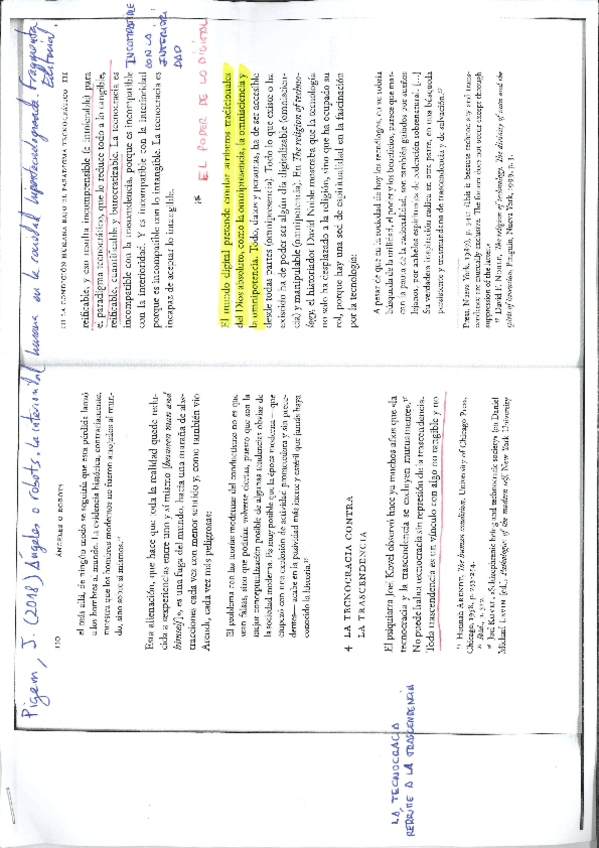 Pigem, J. (2018) Angeles o robots. La interioridad humana en la sociedad hipertecnológica. Fragmenta Editorial.
130
ÁNGELES O ROBOTS
el más allá, de ningún modo se seguiría que esta pérdida lanzó
a los hombres al mundo. La evidencia histórica, contrariamente,
muestra que los hombres modernos no fueron arrojados al mun-
do, sino sobre sí mismos.
Esta alienación, que hace que toda la realidad quede redu-
cida a «experiencias entre uno y sí mismo [between man and
himself]», es una fuga del mundo, hacia una maraña de abs-
tracciones cada vez con menor sentido y, como también vio
Arendt, cada vez más peligrosa:
El problema con las teorías modernas del conductismo no es que
sean falsas, sino que podrían volverse ciertas, puesto que son la
mejor conceptualización posible de algunas tendencias obvias de
la sociedad moderna. Es muy posible que la época moderna —que
empezó con una explosión de actividad prometedora y sin prece-
dentes— acabe en la pasividad más inerte y estéril que jamás haya
conocido la historia.
4 LA TECNOCRACIA CONTRA
LA TRASCENDENCIA
El psiquiatra Joel Kovel observó hace ya muchos años que «la
tecnocracia y la trascendencia se excluyen mutuamente».
No puede haber tecnocracia sin represión de la trascendencia.
Toda trascendencia es un vínculo con algo no tangible y no
LA TECNOCRACIA
REPRIME A LA TRASCENDENCIA
Hannah Arendt, The human condition, University of Chicago Press,
Chicago, 1958, p.
Ibid., p. 322.
Joel Kovel, «Schizophrenic being and technocratic society» (en David
Michael Levin (ed.), Pathologies of the modern self, New York University
III LA CONDICIÓN HUMANA BAJO EL PARADIGMA TECNOCRÁTICO 131
reificable, y eso resulta incomprensible (e intolerable) para
el paradigma tecnocrático, que lo reduce todo a lo tangible,
reificable, cuantificable y burocratizable. La tecnocracia es
incompatible con la trascendencia, porque es incompatible
con la interioridad. Y es incompatible con la interioridad
porque es incompatible con lo intangible. La tecnocracia es
incapaz de respetar lo intangible.
INCOMPATIBLE
CON LA
INTERIORI
DAD
* EL PODER DE LO DIGITAL
El mundo digital pretende emular atributos tradicionales
del Dios absoluto, como la omnipresencia, la omnisciencia y
la omnipotencia. Todo, datos y personas, ha de ser accesible
desde todas partes (omnipresencia). Todo lo que existe o ha
existido ha de poder ser algún día digitalizable (omniscien-
cia) y manipulable (omnipotencia). En The religion of techno-
logy, el historiador David Noble mostraba que la tecnología
no solo ha desplazado a la religión, sino que ha ocupado su
rol, porque hay una sed de espiritualidad en la fascinación
por la tecnología:
A pesar de que en la sociedad de hoy los tecnólogos, en su sobria
búsqueda de la utilidad, el poder y los beneficios, parece que mar-
can la pauta de la racionalidad, son también guiados por sueños
lejanos, por anhelos espirituales de redención sobrenatural. [...]
Su verdadera inspiración radica en otra parte, en una búsqueda
persistente y extramundana de trascendencia y de salvación.
Press, Nueva York, 1987), p. 340: «This is because technocracy and trans-
cendence are mutually exclusive. The former does not occur except through
suppression of the latter».
David F. Noble, The religion of technology. The divinity of man and the
spirit of invention, Penguin, Nueva York, 1999, p. 3.